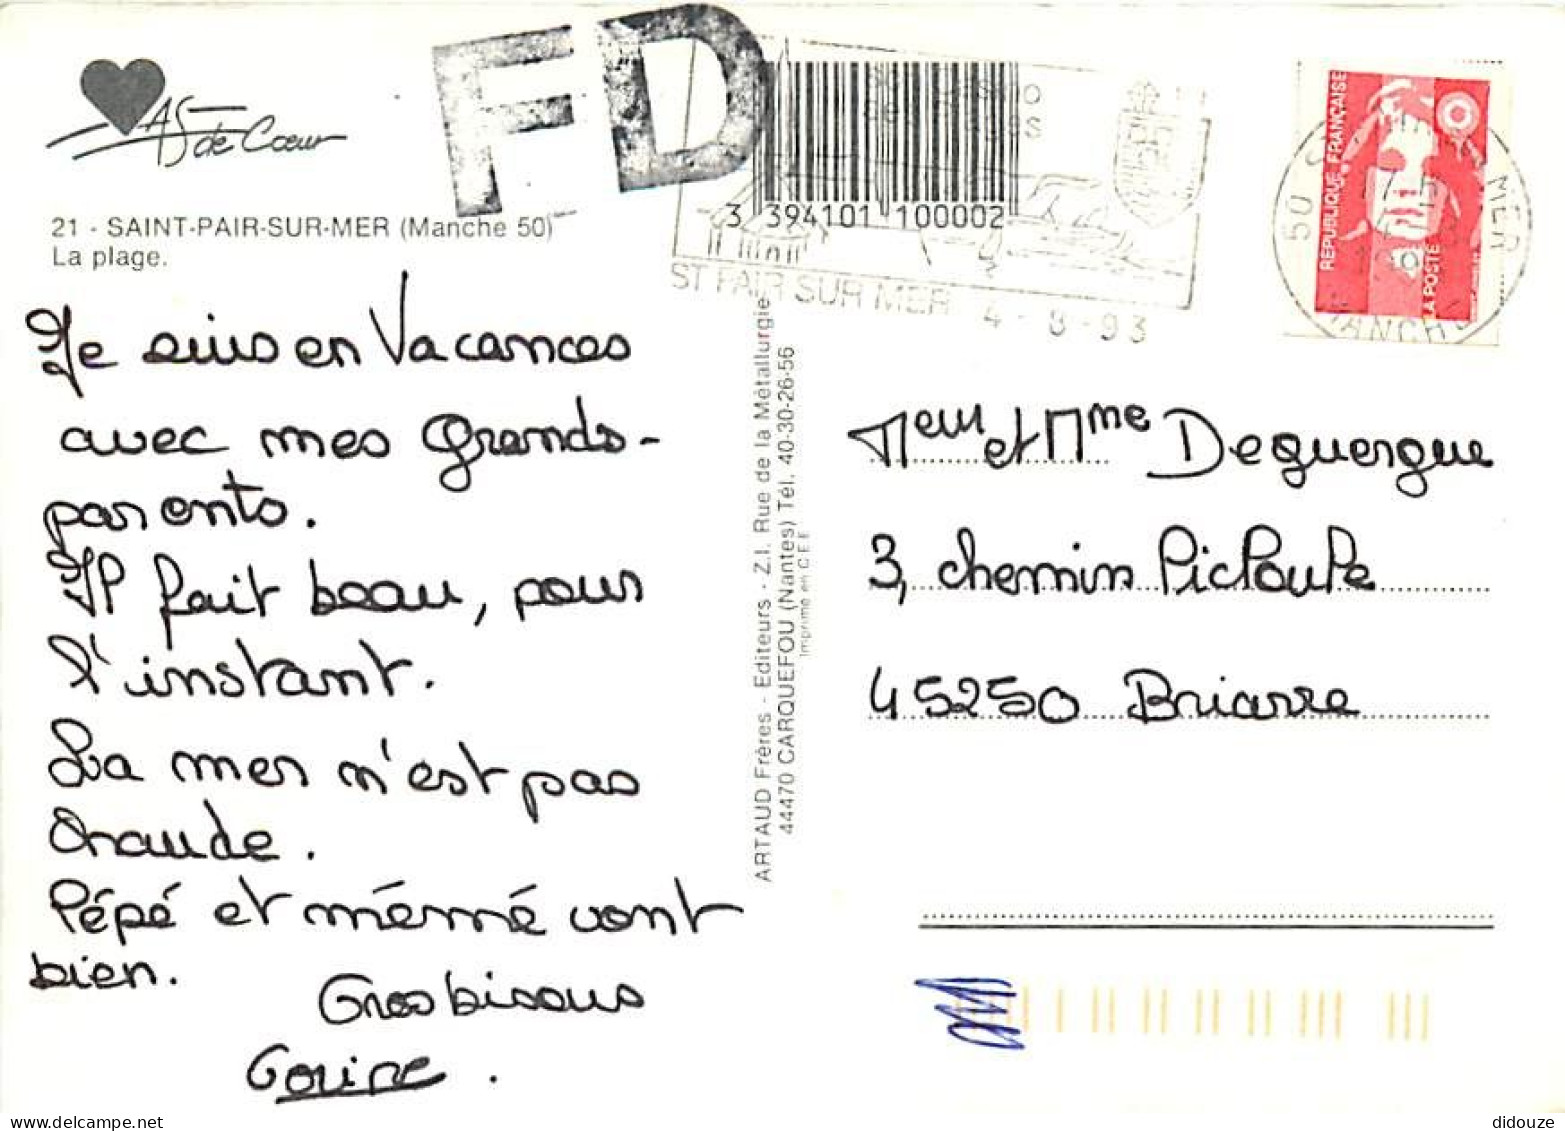 As de Cœur
21 - SAINT-PAIR-SUR-MER (Manche 50)
La plage.
FD
3 394101 100002
ST PAIR SUR MER 4-8-93
50 S MER
MANCHE
REPUBLIQUE FRANÇAISE
LA POSTE
Je suis en Vacances
avec mes Grands-
parents.
Il fait beau, pour
l'instant.
La mer n'est pas
chaude.
Pépé et mémé vont
bien.
Gros bisous
ARTAUD Frères - Editeurs - Z.I. Rue de la Métallurgie
44470 CARQUEFOU (Nantes) Tél. 40-30-26-56
Imprimé en C.E.E.
Meur et Mme Deguergue
3, chemin Picloule
45250 Briarre
didouze